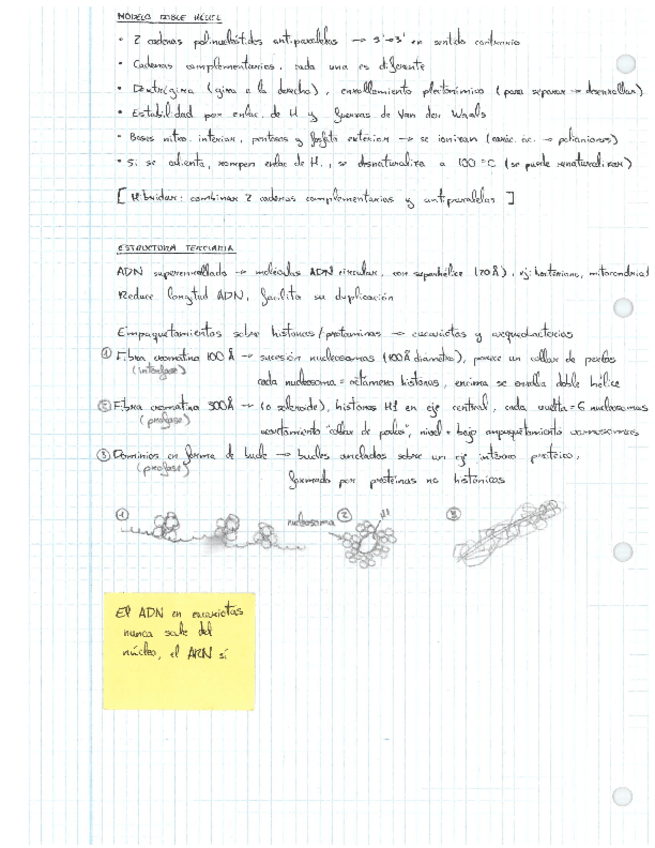 MODELO DOBLE HÉLICE
• 2 cadenas polinucleótidos antiparalelas → 5'→3' en sentido contrario
• Cadenas complementarias, cada una es diferente
• Dextrógira (gira a la derecha), enrollamiento plectonímico (para separar → desenrollar)
• Estabilidad por enlac. de H y fuerzas de Van der Waals
• Bases nitro. interior, pentosas y fosfato exterior → se ionizan (carác. ác. → polianiones)
• Si se calienta, rompen enlac de H., se desnaturaliza a 100 ºC (se puede renaturalizar)
[ Hibridar: combinar 2 cadenas complementarias y antiparalelas ]
ESTRUCTURA TERCIARIA
ADN superenrollado → moléculas ADN circular, con superhélice (20 Å), ej: bacteriano, mitocondrial
Reduce longitud ADN, facilita su duplicación
Empaquetamientos sobre histonas/protaminas → eucariotas y arqueobacterias
① Fibra cromatina 100 Å → sucesión nucleosomas (100 Å diámetro), parece un collar de perlas
(interfase) cada nucleosoma = octámero histonas, encima se enrolla doble hélice
② Fibra cromatina 300Å → (o solenoide), histonas H1 en eje central, cada vuelta = 6 nucleosomas
(profase) acortamiento "collar de perlas", nivel + bajo empaquetamiento cromosomas
③ Dominios en forma de bucle → bucles anclados sobre un eje interno proteico,
(profase) formado por proteínas no histónicas
① nucleosoma ② H1 ③
El ADN en eucariotas
nunca sale del
núcleo, el ARN sí